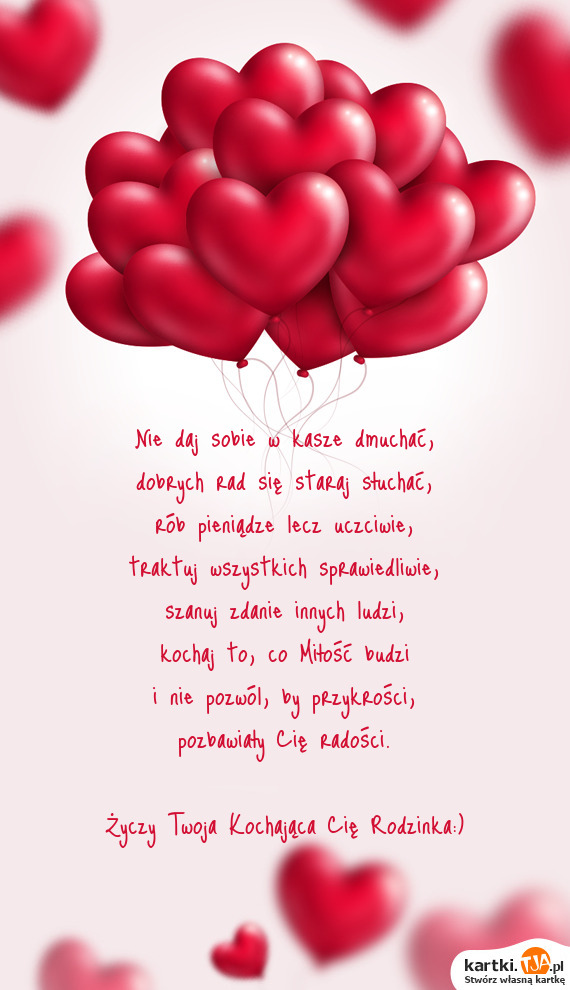 Nie daj sobie w kasze dmuchać,
dobrych rad się staraj słuchać,
rób pieniądze lecz uczciwie,
traktuj wszystkich sprawiedliwie,
szanuj zdanie innych ludzi,
kochaj to, co Miłość budzi
i nie pozwól, by przykrości,
pozbawiały Cię radości.
Życzy Twoja Kochająca Cię Rodzinka:)
kartki.TJA.pl
Stwórz własną kartkę